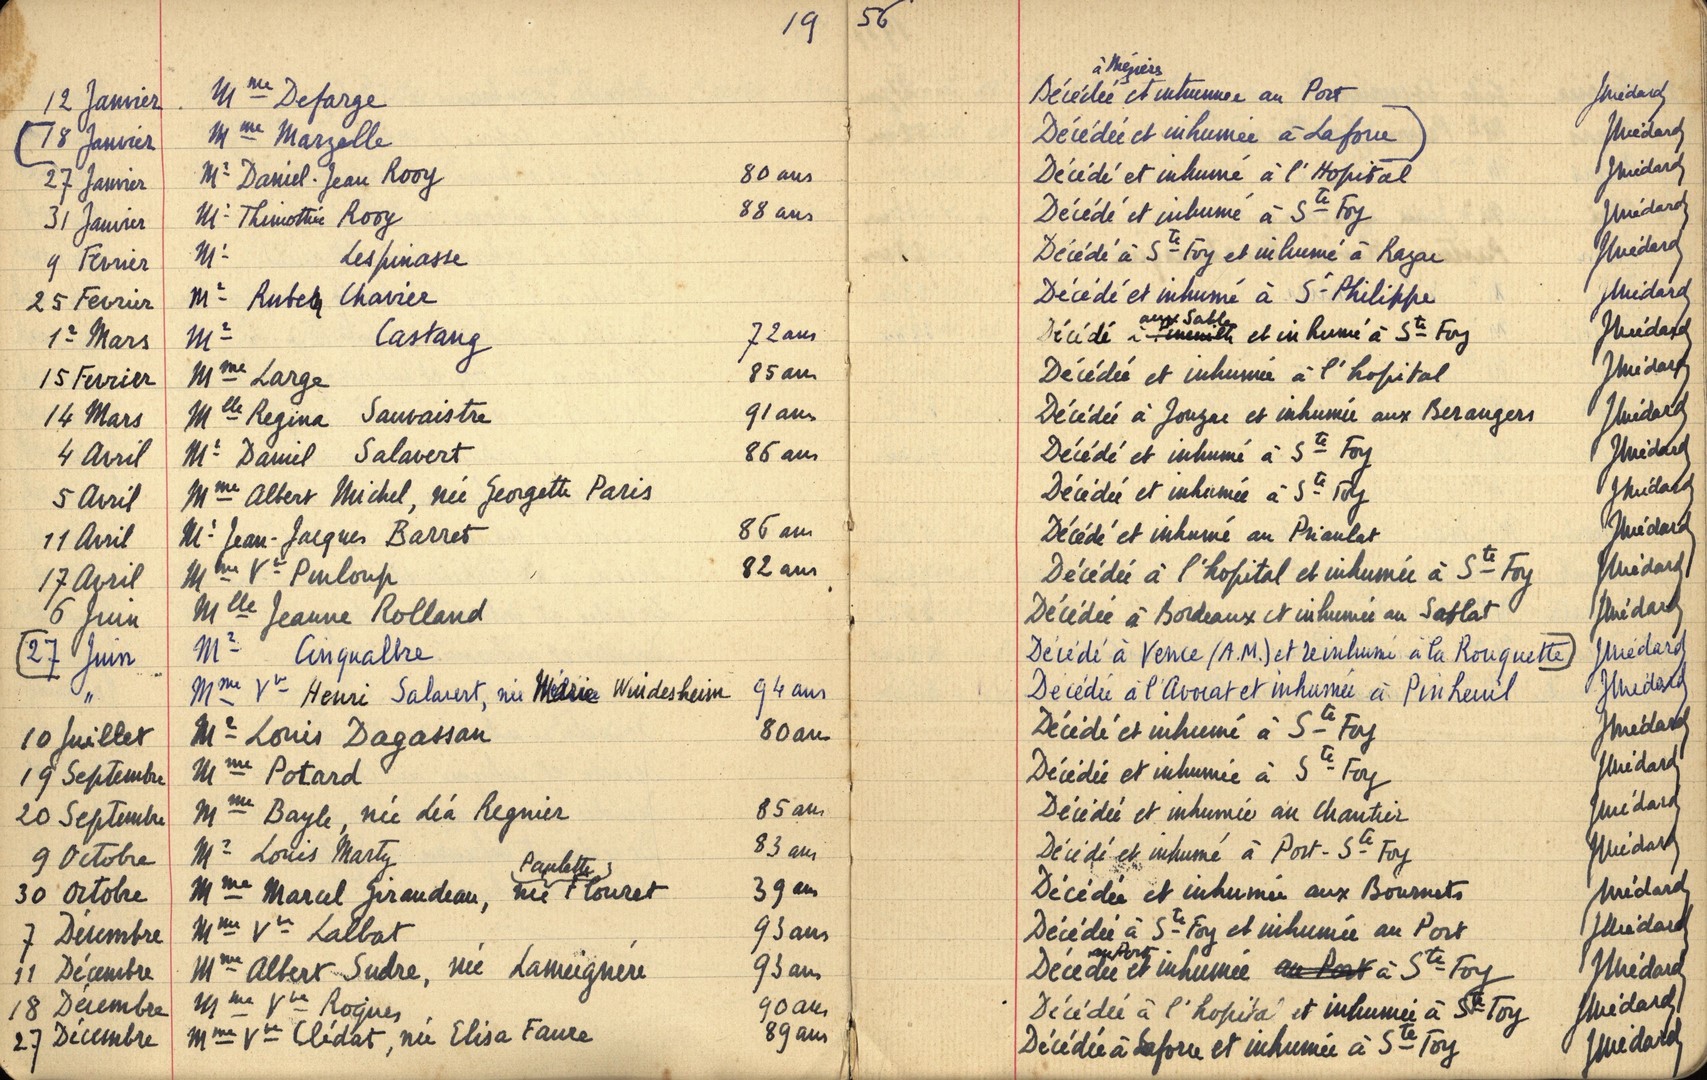 19 56
à Mézières
12 Janvier Mme Defarge Décédée et inhumée au Port JMédard
18 Janvier Mme Marzelle Décédée et inhumée à Laforce JMédard
27 Janvier Mr Daniel-Jean Rooy 80 ans Décédé et inhumé à l'Hopital JMédard
31 Janvier Mr Thimothée Rooy 88 ans Décédé et inhumé à Ste Foy JMédard
9 Fevrier Mr Lespinasse Décédé à Ste Foy et inhumé à Razac JMédard
25 Fevrier Mr Ruben Chavier Décédé et inhumé à St Philippe JMédard
aux Sable
1r Mars Mr Castang 72 ans Décédé à et inhumé à Ste Foy JMédard
15 Fevrier Mme Large 85 ans Décédée et inhumée à l'hopital JMédard
14 Mars Mlle Regina Sauvaistre 91 ans Décédée à Jonzac et inhumée aux Berangers JMédard
4 Avril Mr Daniel Salavert 86 ans Décédé et inhumé à Ste Foy JMédard
5 Avril Mme Albert Michel, née Georgette Paris Décédée et inhumée à Ste Foy JMédard
11 Avril Mr Jean-Jacques Barret 86 ans Décédé et inhumé au Priaulat JMédard
17 Avril Mme Ve Pinloup 82 ans Décédée à l'hopital et inhumée à Ste Foy JMédard
6 Juin Mlle Jeanne Rolland Décédée à Bordeaux et inhumée au Sablat JMédard
27 Juin Mr Cinqualbre Décédé à Vence (A.M.) et reinhumé à la Rouquette JMédard
" Mme Vve Henri Salavert, née Marie Windesheim 94 ans Décédée à l'Avocat et inhumée à Pinheuil JMédard
10 Juillet Mr Louis Dagassan 80 ans Décédé et inhumé à Ste Foy JMédard
19 Septembre Mme Potard Décédée et inhumée à Ste Foy JMédard
20 Septembre Mme Bayle, née Léa Regnier 85 ans Décédée et inhumée au Chantier JMédard
9 Octobre Mr Louis Marty 83 ans Décédé et inhumé à Port-Ste Foy JMédard
Paulette
30 Octobre Mme Marcel Giraudeau, née Flouret 39 ans Décédée et inhumée aux Bournets JMédard
7 Décembre Mme Vve Lalbat 93 ans Décédée à Ste Foy et inhumée au Port JMédard
au Port
11 Décembre Mme Albert Sudre, née Lameignère 93 ans Décédée et inhumée au Port à Ste Foy JMédard
18 Décembre Mme Vve Roques 90 ans Décédée à l'hopital et inhumée à Ste Foy JMédard
27 Décembre Mme Vve Clédat, née Elisa Faure 89 ans Décédée à Laforce et inhumée à Ste Foy JMédard